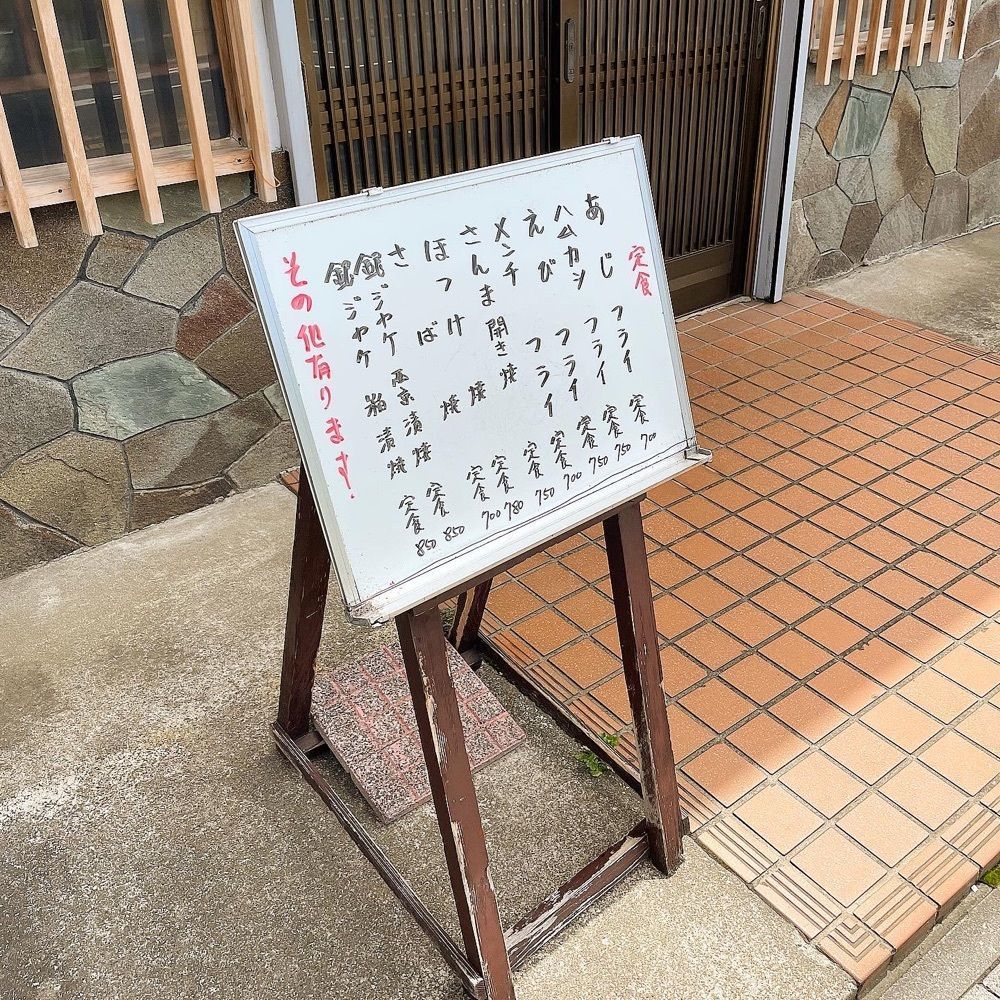 定食
あじ フライ 定食 700
ハムカツ フライ 定食 750
えび フライ 定食 750
メンチ フライ 定食 700
さんま 開き焼 定食 750
ほっけ 焼 定食 780
さば 焼 定食 700
銀ジャケ 西京漬焼 定食 850
銀ジャケ 粕漬焼 定食 850
その他有ります.